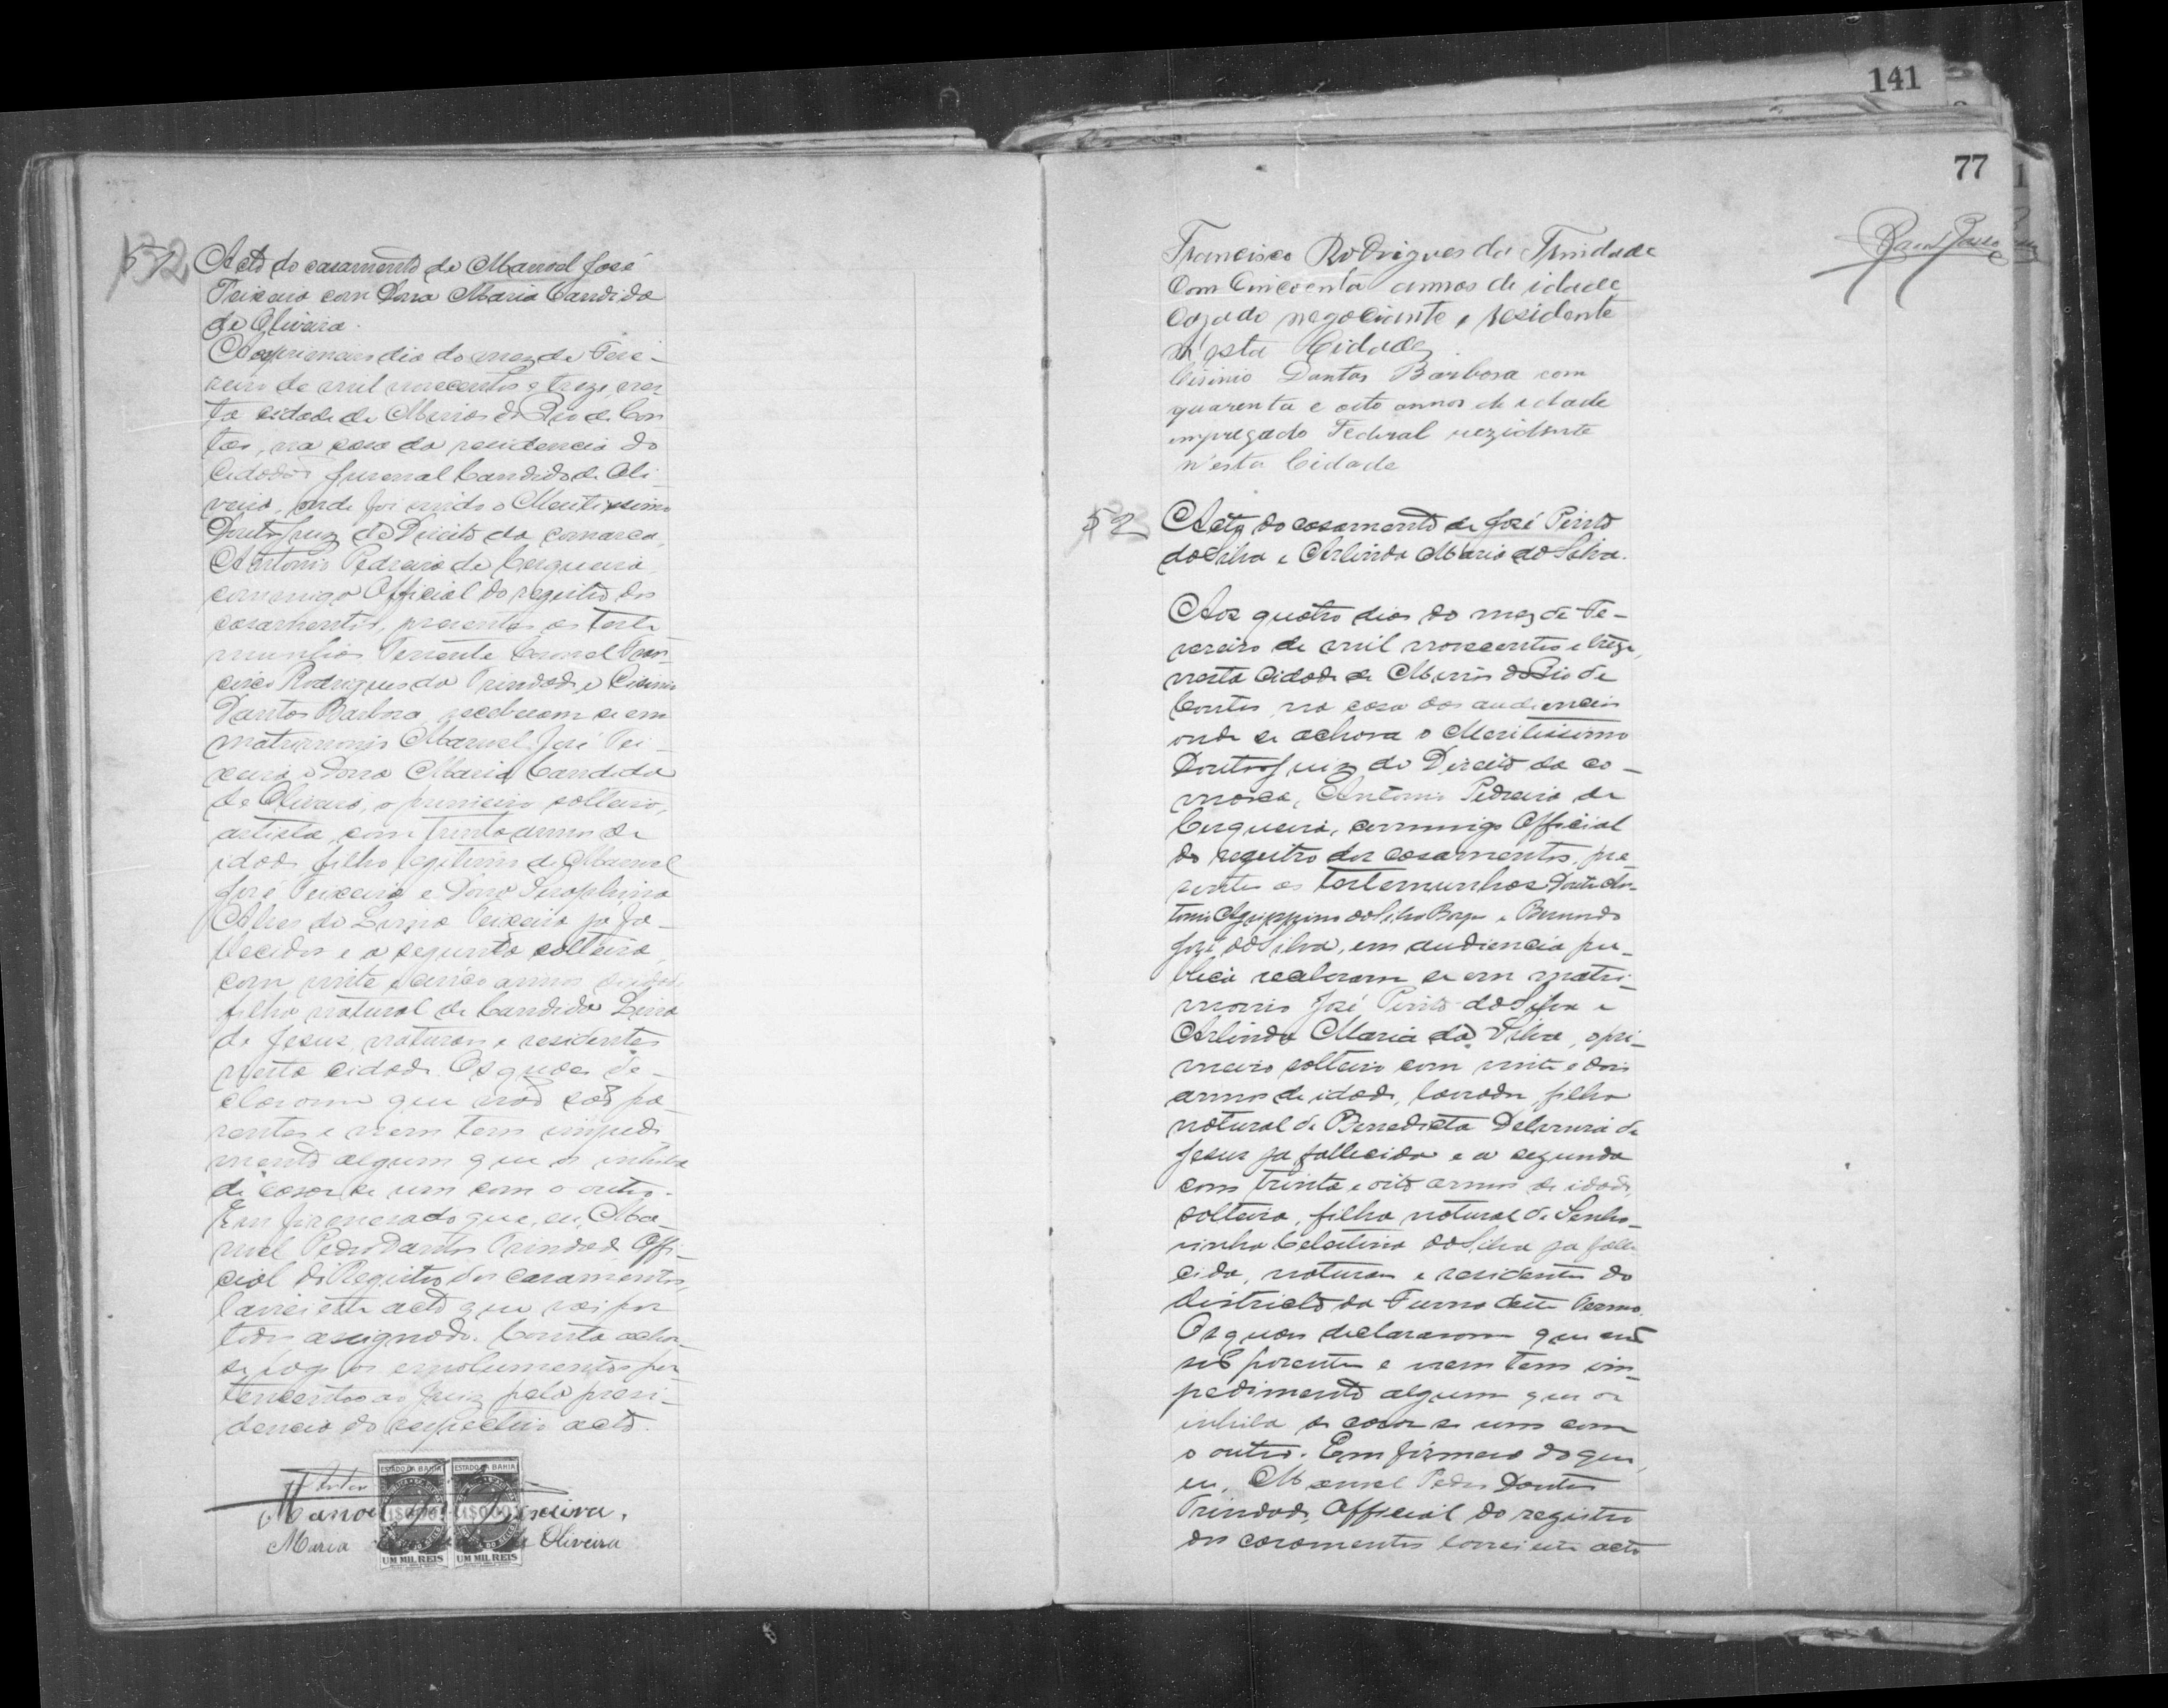 141
77
51
Acto do casamento de Manoel José
Teixeira com Dona Maria Candida
de Oliveira.
Ao primeiro dia do mez de Feve-
reiro de mil novecentos e treze, nes-
ta cidade de Minas do Rio de Con
tas, na casa da residencia do
Cidadão Juvenal Candido de Oli-
veira, onde foi vindo o Meritissimo
Doutor Juiz de Direito da comarca,
Antonio Pedreira de Cerqueira,
commigo Official do registro dos
casamentos, presentes as teste
munhas Tenente Coronel Fran-
cisco Rodrigues da Trindade e Cicinio
Dantas Barbosa, receberam se em
matrimonio Manoel José Tei-
xeira e Dona Maria Candida
de Oliveira, o primeiro solteiro,
artista, com trinta annos de
idade, filho legitimo de Manoel
José Teixeira e Dona Seraphina
Alves de Lima Teixeira ja fa-
lecidos e a segunda solteira,
com vinte e cinco annos de idade
filha natural de Candida Lina
de Jesus, naturaes e residentes
nesta cidade. Os quaes de-
clararam que não são pa-
rentes e nem tem impedi-
mento algum que os inhiba
de casar se um com o outro.
Em firmeza do que, eu, Ma-
noel Pedro Dantas Trindade Offi-
cial do Registro dos casamentos,
lavrei este acto que vai por
todos assignado. Consta achar
se pago os emolumentos per
tencentes ao Juiz pela presi-
dencia do respectivo acto.
ESTADO DA BAHIA ESTADO DA BAHIA
1$000 1$000
UM MIL REIS UM MIL REIS
Manoel José Teixeira.
Maria de Oliveira
Francisco Rodrigues da Trindade
Com Cincoenta annos de idade
Cazado negociante e residente
n'esta Cidade
Cisinio Dantas Barbosa com
quarenta e oito annos de idade
empregado Federal rezidente
n'esta Cidade
52
Acto do casamento de José Pinto
da Silva e Arlinda Maria da Silva.
Aos quatro dias do mez de Fe-
vereiro de mil novecentos e treze,
nesta Cidade de Minas do Rio de
Contas, na casa das audiencias
onde se achava o Meritissimo
Doutor Juiz de Direito da co-
marca, Antonio Pedreira de
Cerqueira, commigo Official
do registro dos casamentos, pre
sentes as testemunhas Doutor An-
tonio Agrippino da Silva Borges e Bernardo
José da Silva, em audiencia pu-
blica receberam se em matri-
monio José Pinto da Silva e
Arlinda Maria da Silva, o pri-
meiro solteiro com vinte e dois
annos de idade, lavrador, filho
natural de Benedicta Delmira de
Jesus ja fallecida e a segunda
com trinta e oito annos de idade,
solteira, filha natural de Senho-
rinha Celestina da Silva ja falle
cida, naturaes e residentes do
districto da Furna deste Termo.
Os quaes declararam que não
são parentes e nem tem im-
pedimento algum que os
inhiba de casar se um com
o outro. Em firmeza do que,
eu, Manoel Pedro Dantas
Trindade, Official do registro
dos casamentos lavrei este acto